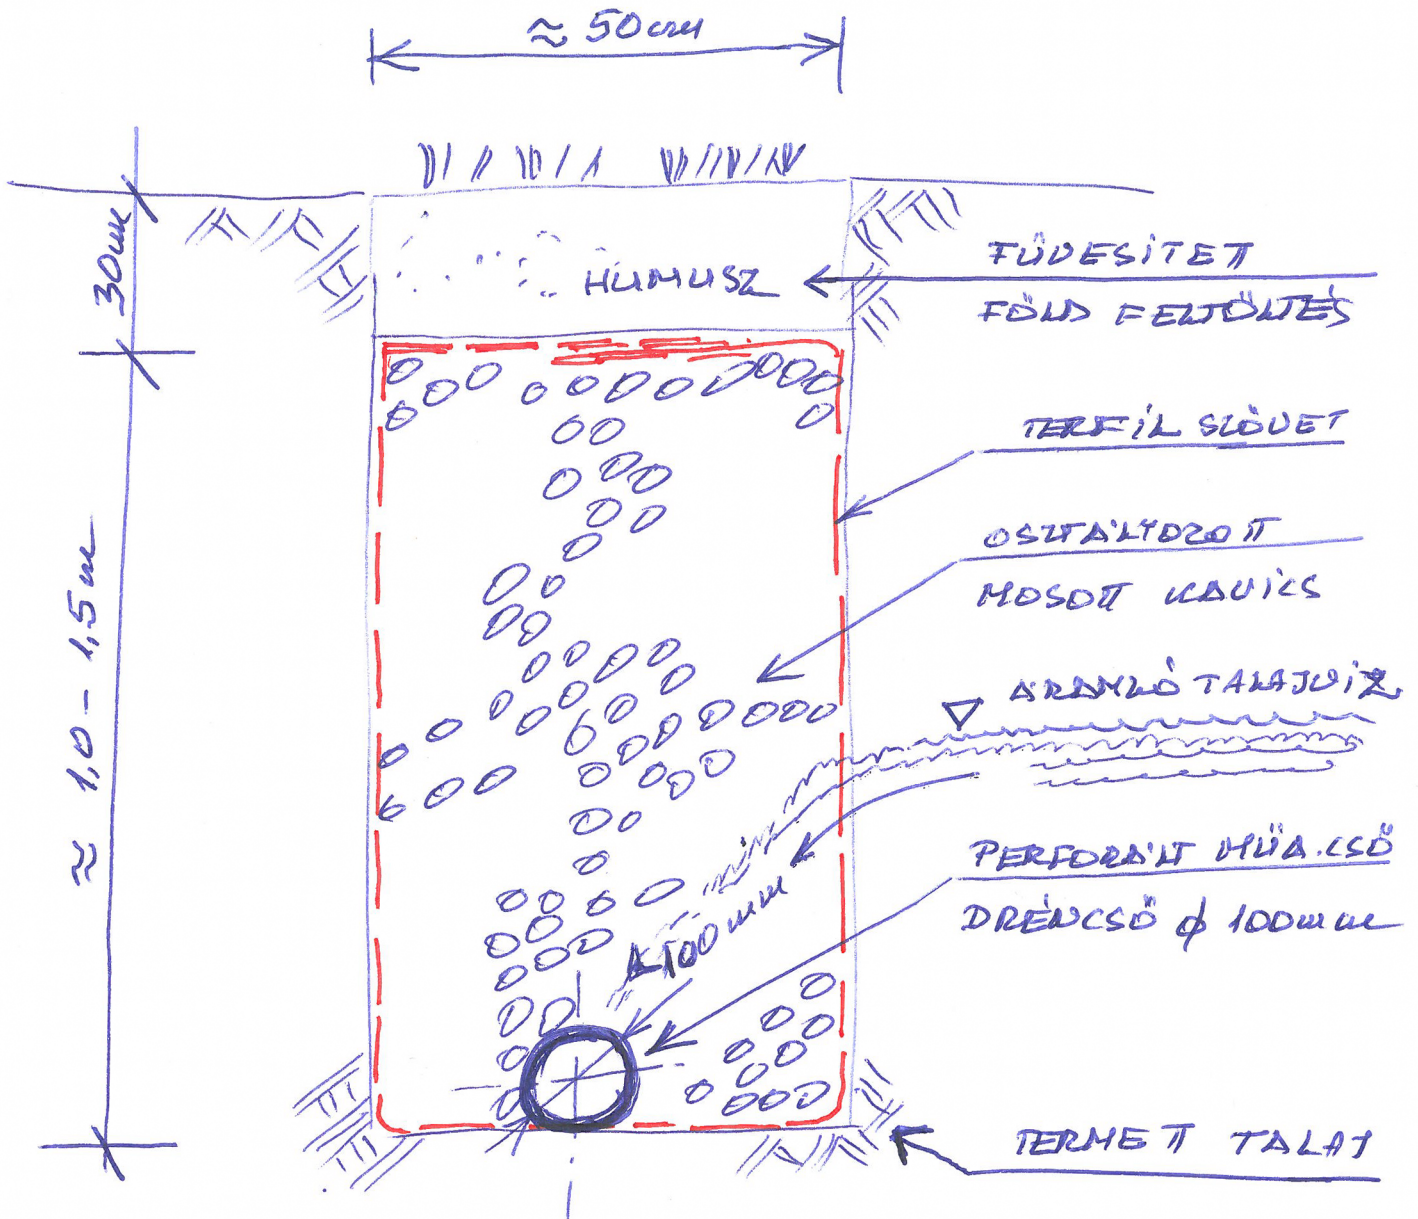 ≈ 50cm
30cm
HUMUSZ
FÜVESÍTETT
FÖLD FELTÖLTÉS
TERFIL SZÖVET
OSZTÁLYOZOTT
MOSOTT KAVICS
≈ 1,0 - 1,5m
ÁRAMLÓ TALAJVÍZ
PERFORÁLT MŰA.CSŐ
DRÉNCSŐ ϕ 100mm
100mm
TERMETT TALAJ